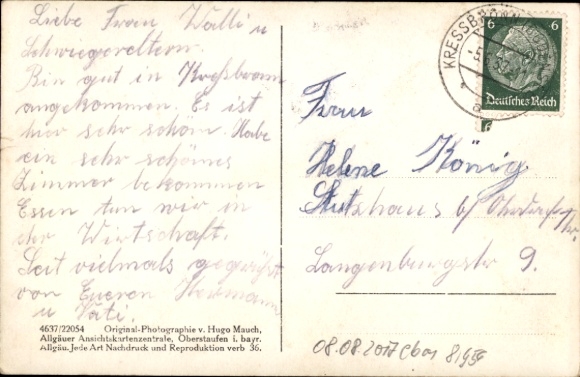 Liebe Frau Walli u
Schwiegereltern.
Bin gut in Kreßbronn
angekommen. Es ist
hier sehr schön. Habe
ein sehr schönes
Zimmer bekommen
Essen tun wir in
der Wirtschaft.
Seit vielmals gegrüßt
von Eueren Hermann
u Vati.
4637/22054 Original-Photographie v. Hugo Mauch,
Allgäuer Ansichtskartenzentrale, Oberstaufen i. bayr.
Allgäu. Jede Art Nachdruck und Reproduktion verb 36.
KRESSBRONN
6 6
Deutsches Reich
Frau
Helene König
Stutzhaus b/
Langenburgstr 9.
08.08.2017